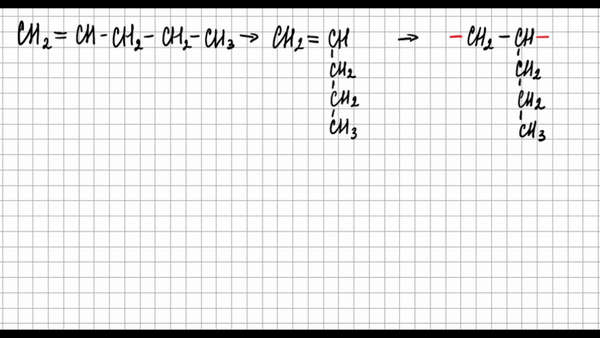 CH₂=CH-CH₂-CH₂-CH₃→ CH₂=CH → -CH₂-CH-
CH₂ CH₂
CH₂ CH₂
CH₃ CH₃